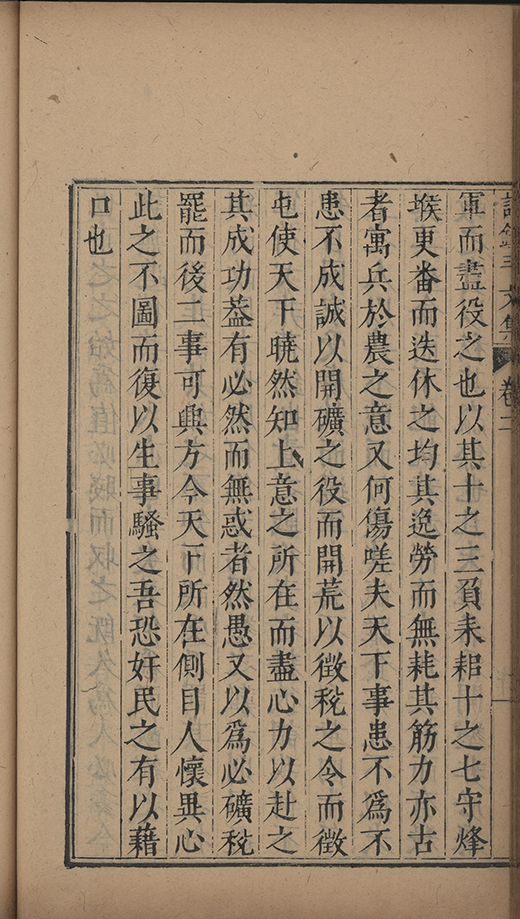 文集 卷二
軍而盡役之也以其十之三負耒耜十之七守烽
堠更番而迭休之均其逸勞而無耗其筋力亦古
者寓兵於農之意又何傷嗟夫天下事患不爲不
患不成誠以開礦之役而開荒以徵稅之令而徵
屯使天下曉然知上意之所在而盡心力以赴之
其成功葢有必然而無惑者然愚又以爲必礦稅
罷而後二事可興方今天下所在側目人懷異心
此之不圖而復以生事騷之吾恐奸民之有以藉
口也